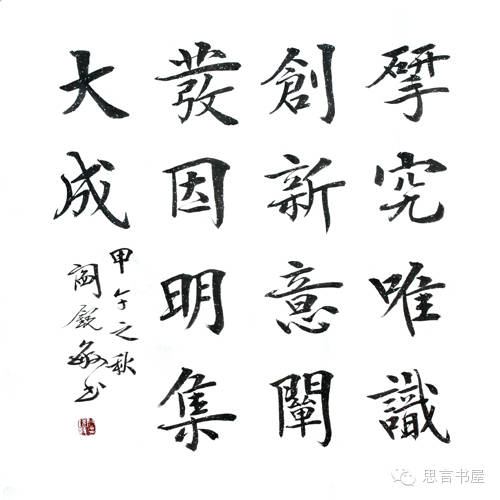 揅究唯識
創新意闡
發因明集
大成
甲午之秋
敏书
思言书屋